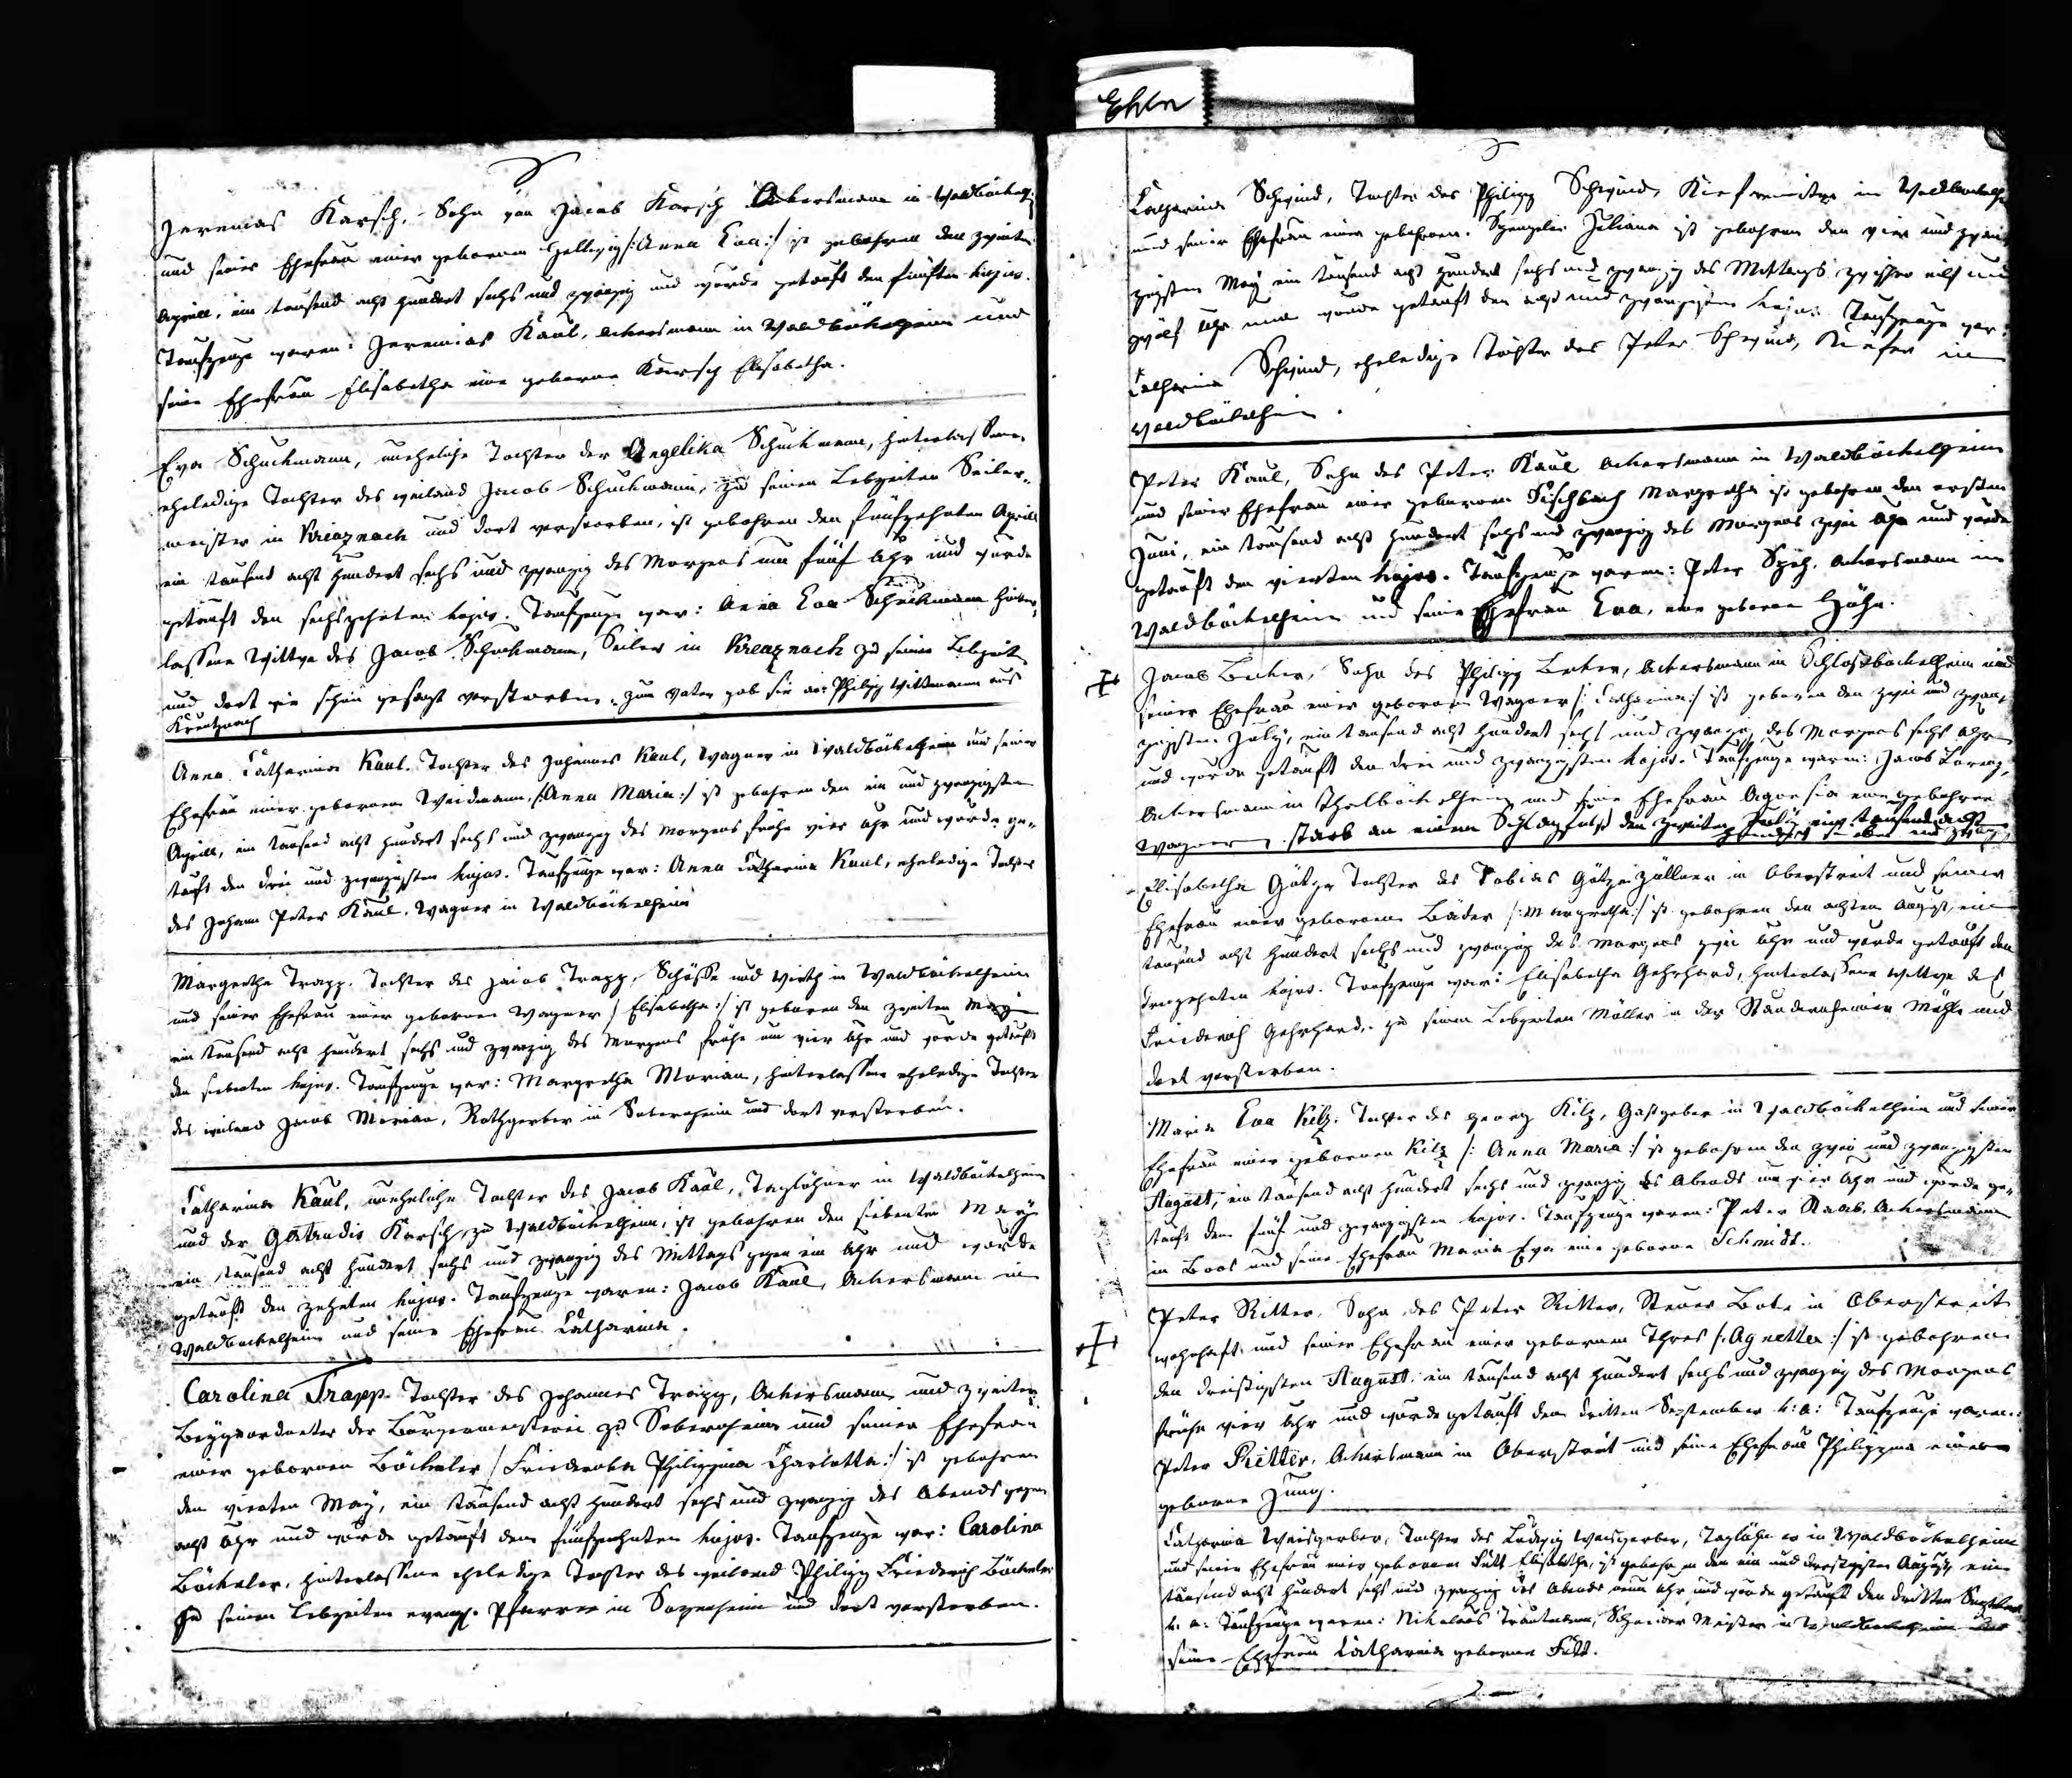 Ehen
Jeremias Karsch, Sohn von Jacob Karsch Ackersmann in Waldböckelh.
und seiner Ehefrau einer gebornen /:Anna Eva:/ ist gebohren den zweiten
Aprill, ein tausend acht hundert sechs und zwanzig und wurde getauft den fünften hujus.
Taufzeuge waren: Jeremias Kaul, Ackersmann in Waldböckelheim und
seine Ehefrau Elisabetha eine geborne Karsch Elisabetha.
Eva Schuckmann, uneheliche Tochter der Angelika Schuckmann, hinterlassene
eheledige Tochter des weiland Jacob Schuckmann, zu seinen Lebzeiten Seiler-
meister in Kreuznach und dort verstorben, ist gebohren den fünfzehnten Aprill
ein tausend acht hundert sechs und zwanzig des Morgens um fünf Uhr und wurde
getauft den sechszehnten hujus. Taufzeuge war: Anna Eva Schuckmann hinter-
lassene Wittwe des Jacob Schuckmann, Seiler in Kreuznach zu seiner Lebzeit
und dort wie schon gesagt verstorben. zum Vater gab sie an: Philipp Wittmann aus
Kreutznach
Anna Catharina Kaul. Tochter des Johannes Kaul, Wagner in Waldböckelheim und seiner
Ehefrau einer gebornen Weidmann, /:Anna Maria:/ ist gebohren den ein und zwanzigsten
Aprill, ein tausend acht hundert sechs und zwanzig des Morgens frühe vier Uhr und wurde ge-
tauft den drei und zwanzigsten hujus. Taufzeuge war: Anna Catharina Kaul, eheledige Tochter
des Johann Peter Kaul. Wagner in Waldböckelheim
Margretha Trapp. Tochter des Jacob Trapp, Schöffe und Wirth in Waldböckelheim
und seiner Ehefrau einer gebornen Wagner / Elisabetha:/ ist geboren den zweiten May
ein tausend acht hundert sechs und zwanzig des Morgens frühe um vier Uhr und wurde getauft
den siebenten hujus. Taufzeuge war: Margretha Morian, hinterlassene eheledige Tochter
des weiland Jacob Morian, Rothgerber in Sobernheim und dort verstorben.
Catharina Kaul, uneheliche Tochter des Jacob Kaul, Taglöhner in Waldböckelheim
und der Karsch, zu Waldböckelheim, ist gebohren den siebenten May
ein tausend acht hundert sechs und zwanzig des Mittags gegen ein Uhr und wurde
getauft den zehnten hujus. Taufzeuge waren: Jacob Kaul, Ackersmann in
Waldböckelheim und seine Ehefrau Catharina.
Carolina Trapp. Tochter des Johannes Trapp, Ackersmann und zweiter
Beygeordneter der Bürgermeisterei zu Sobernheim und seiner Ehefrau
einer gebornen Böckeler /Friederika Philippina Charlotta:/ ist gebohren
den vierten May, ein tausend acht hundert sechs und zwanzig des Abends gegen
acht Uhr und wurde getauft den fünfzehnten hujus. Taufzeuge war: Carolina
Böckeler, hinterlassene eheledige Tochter des weiland Philipp Friederich Böckeler
zu seinen Lebzeiten evang. Pfarrer in und dort verstorben.
Catharina Schwind, Tochter des Philipp Schwind, in Waldböckelh.
und seiner Ehefrau einer gebohrnen. Spengler Juliana ist gebohren den vier und zwan-
zigsten May ein tausend acht hundert sechs und zwanzig des Mittags zwischen eilf und
zwölf Uhr und wurde getauft den acht und zwanzigsten hujus. Taufzeuge war:
Catharina Schwind, eheledige Tochter des Peter Schwind, Kiefer in
Waldböckelheim.
Peter Kaul, Sohn des Peter Kaul Ackersmann in Waldböckelheim
und seiner Ehefrau einer gebornen Fischbach Margretha ist gebohren den ersten
Juni, ein tausend acht hundert sechs und zwanzig des Morgens zwei Uhr und wurde
getauft den vierten hujus. Taufzeuge waren: Peter Ackersmann in
Waldböckelheim und seine Ehefrau Eva, eine geborne Höhn.
Jacob Becker, Sohn des Philipp Becker, Ackersmann in Schloßböckelheim und
seiner Ehefrau einer gebornen Wagner /: Catharina:/ ist geboren den zwei und zwan-
zigsten July, ein tausend acht hundert sechs und zwanzig des Morgens sechs Uhr
und wurde getauft den drei und zwanzigsten hujus. Taufzeuge waren: Jacob Lorenz,
Ackersmann in Thalböckelheim und seine Ehefrau eine gebohrne
Wagner. starb an einem Schlagfluß den zweiten July ein tausend acht
hundert sieben und zwanzig
Elisabetha Götze Tochter des Tobias Götze Zöllner in Oberstreit und seiner
Ehefrau einer gebornen Bäder /:Margretha:/ ist gebohren den achten August, ein
tausend acht hundert sechs und zwanzig des Morgens zwei Uhr und wurde getauft den
dreizehnten hujus. Taufzeuge war: Elisabetha Gehrhard, hinterlassene Wittwe des
Friederich Gehrhard, zu seinen Lebzeiten Müller in der Staudernheimer Mühle und
dort verstorben.
Maria Eva Kilz. Tochter des Georg Kilz, Gastgeber in Waldböckelheim und seiner
Ehefrau einer gebornen Kilz /: Anna Maria:/ ist gebohren den zwei und zwanzigsten
August, ein tausend acht hundert sechs und zwanzig des Abends um vier Uhr und wurde ge-
tauft den fünf und zwanzigsten hujus. Taufzeuge waren: Peter Raab, Ackersmann
in Boos und seine Ehefrau Maria Eva eine geborne Schmidt.
Peter Ritter, Sohn des Peter Ritter, Steuer Bote in Oberstreit
wohnhaft und seiner Ehefrau einer gebornen Thres /:Agnetta:/ ist gebohren
den dreißigsten August ein tausend acht hundert sechs und zwanzig des Morgens
frühe vier Uhr und wurde getauft den dritten September h: a: Taufzeuge waren:
Peter Ritter, Ackersmann in Oberstreit und seine Ehefrau Philippina eine
geborne Jung.
Catharina Weisgerber, Tochter des Ludwig Weisgerber, Taglöhner in Waldböckelheim
und seiner Ehefrau einer gebornen Fett Elisabetha, ist gebohren den ein und dreißigsten August, ein
tausend acht hundert sechs und zwanzig des Abends neun Uhr, und wurde getauft den dritten September
h. a: Taufzeuge waren: Nikolaus Trautmann, Schneider Meister in Waldböckelheim und
seine Ehefrau Catharina geborne Fett.